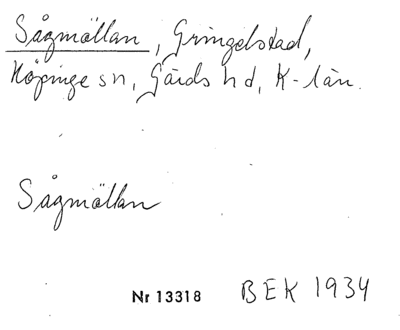 Sågmöllan, Gringelstad,
Köpinge sn, Gärds hd, K-län.
Sågmöllan
Nr 13318 BEK 1934